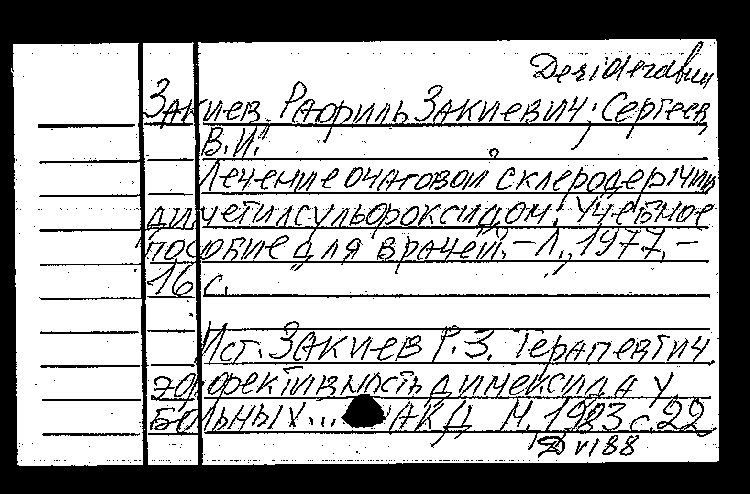 Desiderata
Закиев, Рафиль Закиевич; Сергеев,
В.И.
Лечение очаговой склеродермии
диметилсульфоксидом. Учебное
пособие для врачей. – Л., 1977. –
16 с.
Ист. Закиев Р.З. Терапевтич.
эффективность димексида у
больных... АКД М. 1983 с. 22
VI 88